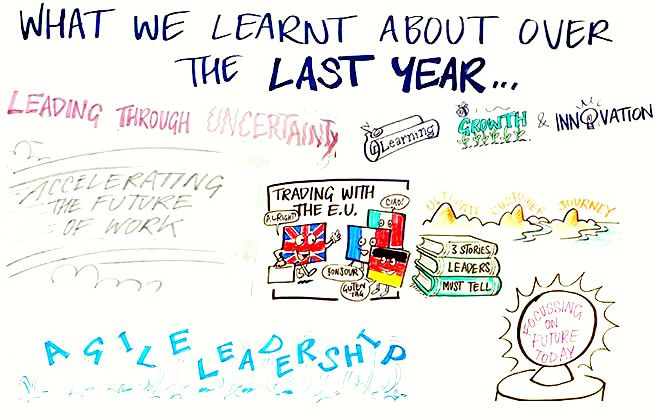 WHAT WE LEARNT ABOUT OVER
THE LAST YEAR...
LEADING THROUGH UNCERTAINTY
Learning
GROWTH & INNOVATION
ACCELERATING
THE FUTURE
OF WORK
TRADING WITH
THE E.U.
ALRIGHT
CIAO!
BONJOUR
GUTEN
TAG
ULTIMATE CUSTOMER JOURNEY
3 STORIES
LEADERS
MUST TELL
FOCUSSING
ON
FUTURE
TODAY
AGILE LEADERSHIP